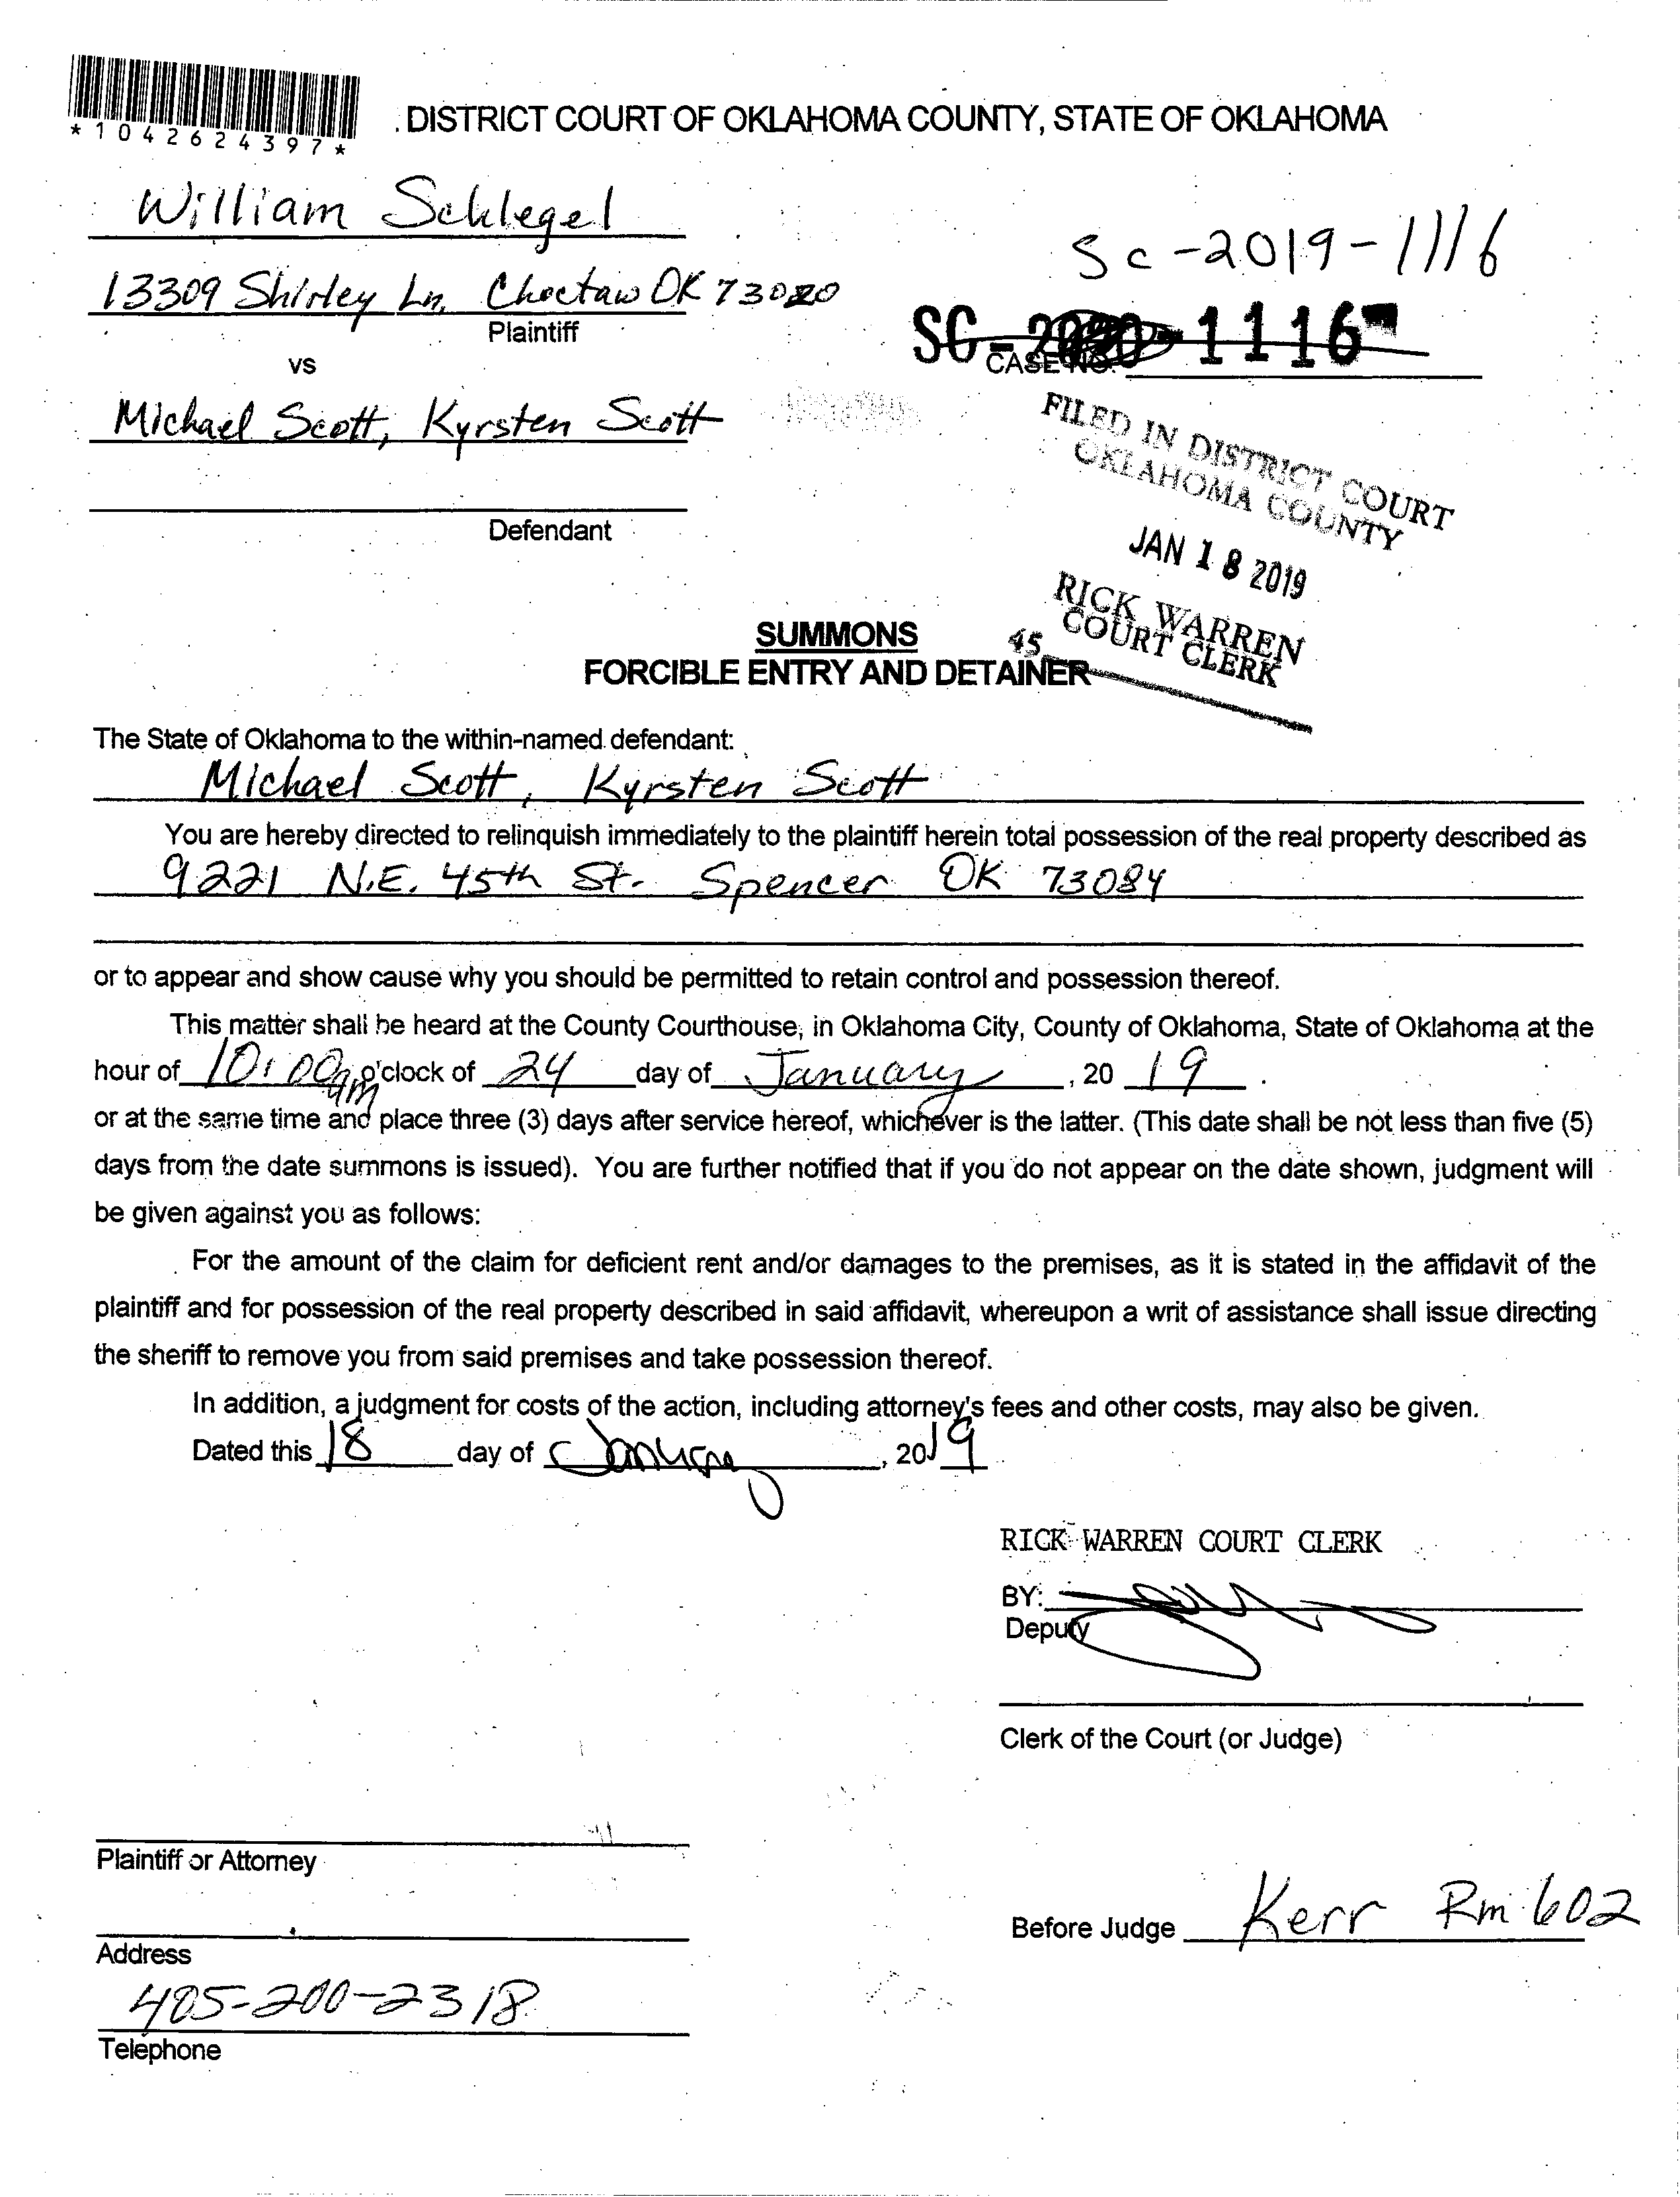 *1042624397*
DISTRICT COURT OF OKLAHOMA COUNTY, STATE OF OKLAHOMA
William Schlegel
13309 Shirley Ln, Choctaw OK 73020
Plaintiff
vs
Michael Scott, Kyrsten Scott
Defendant
Sc-2019-1116
SC- 1116
CASE NO.
FILED IN DISTRICT COURT
OKLAHOMA COUNTY
JAN 18 2019
RICK WARREN
COURT CLERK
45
SUMMONS
FORCIBLE ENTRY AND DETAINER
The State of Oklahoma to the within-named defendant:
Michael Scott, Kyrsten Scott
You are hereby directed to relinquish immediately to the plaintiff herein total possession of the real property described as
9221 N.E. 45th St. Spencer OK 73084
or to appear and show cause why you should be permitted to retain control and possession thereof.
This matter shall be heard at the County Courthouse, in Oklahoma City, County of Oklahoma, State of Oklahoma at the
hour of 10:00 am o'clock of 24 day of January, 20 19.
or at the same time and place three (3) days after service hereof, whichever is the latter. (This date shall be not less than five (5)
days from the date summons is issued). You are further notified that if you do not appear on the date shown, judgment will
be given against you as follows:
For the amount of the claim for deficient rent and/or damages to the premises, as it is stated in the affidavit of the
plaintiff and for possession of the real property described in said affidavit, whereupon a writ of assistance shall issue directing
the sheriff to remove you from said premises and take possession thereof.
In addition, a judgment for costs of the action, including attorney's fees and other costs, may also be given.
Dated this 18 day of January, 2019
RICK WARREN COURT CLERK
BY:
Deputy
Clerk of the Court (or Judge)
Plaintiff or Attorney
Before Judge Kerr Rm 602
Address
405-200-2318
Telephone